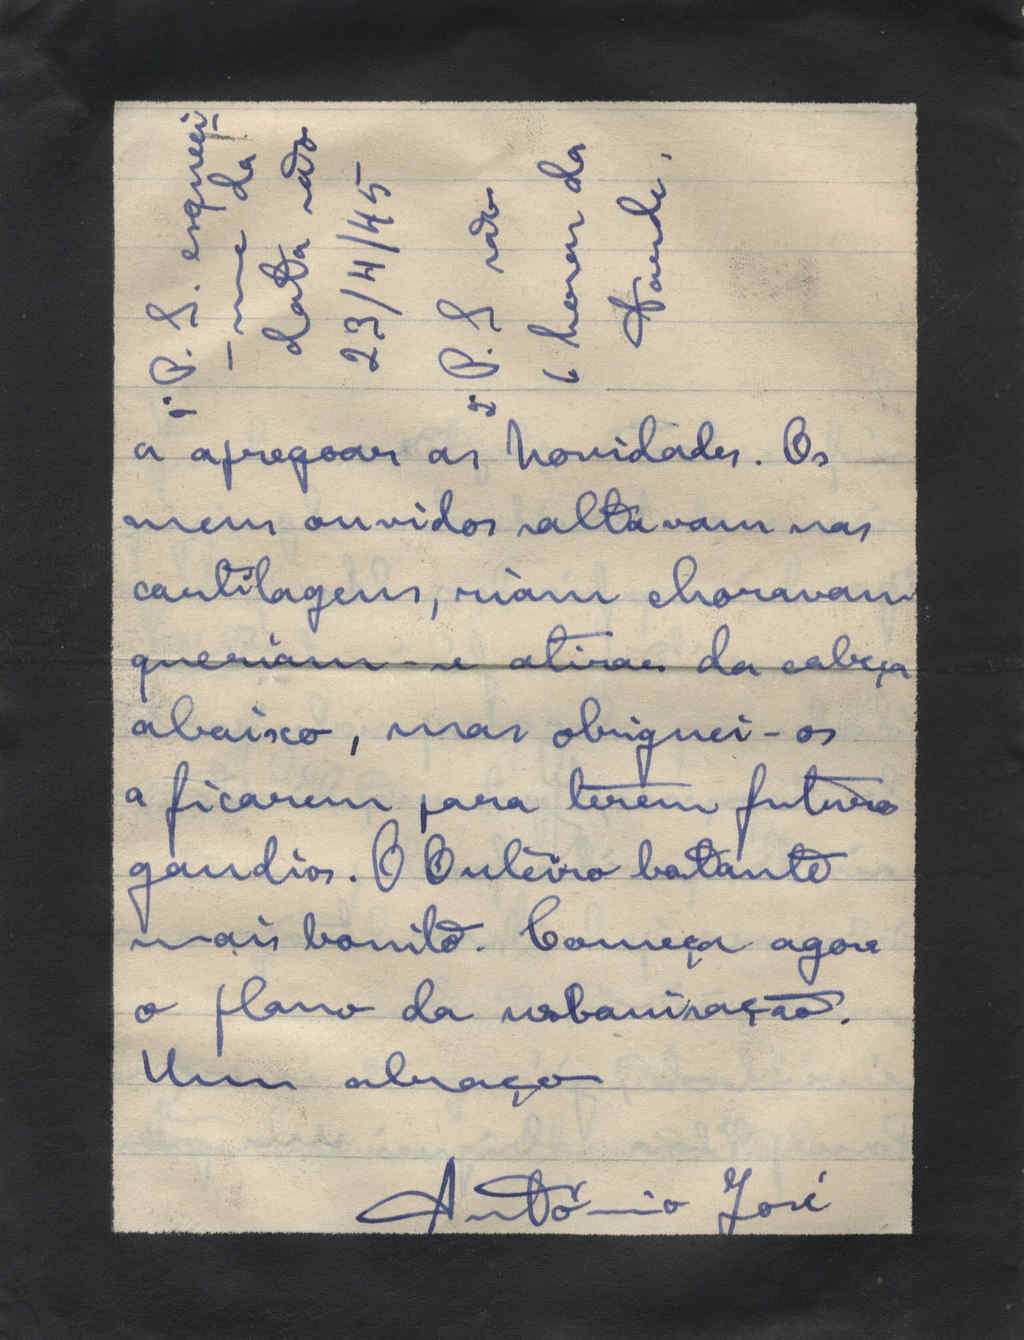 1º P. S. esqueci
-me da
data são
23/4/45
2º P. S são
6 horas da
tarde.
a apregoar as Novidades. Os
meus ouvidos saltavam nas
cartilagens, riam choravam
queriam-se atirar da cabeça
abaixo, mas obriguei-os
a ficarem para terem futuros
gaudios. O Outeiro bastante
mais bonito. Começa agora
o plano da urbanização.
Um abraço
António José